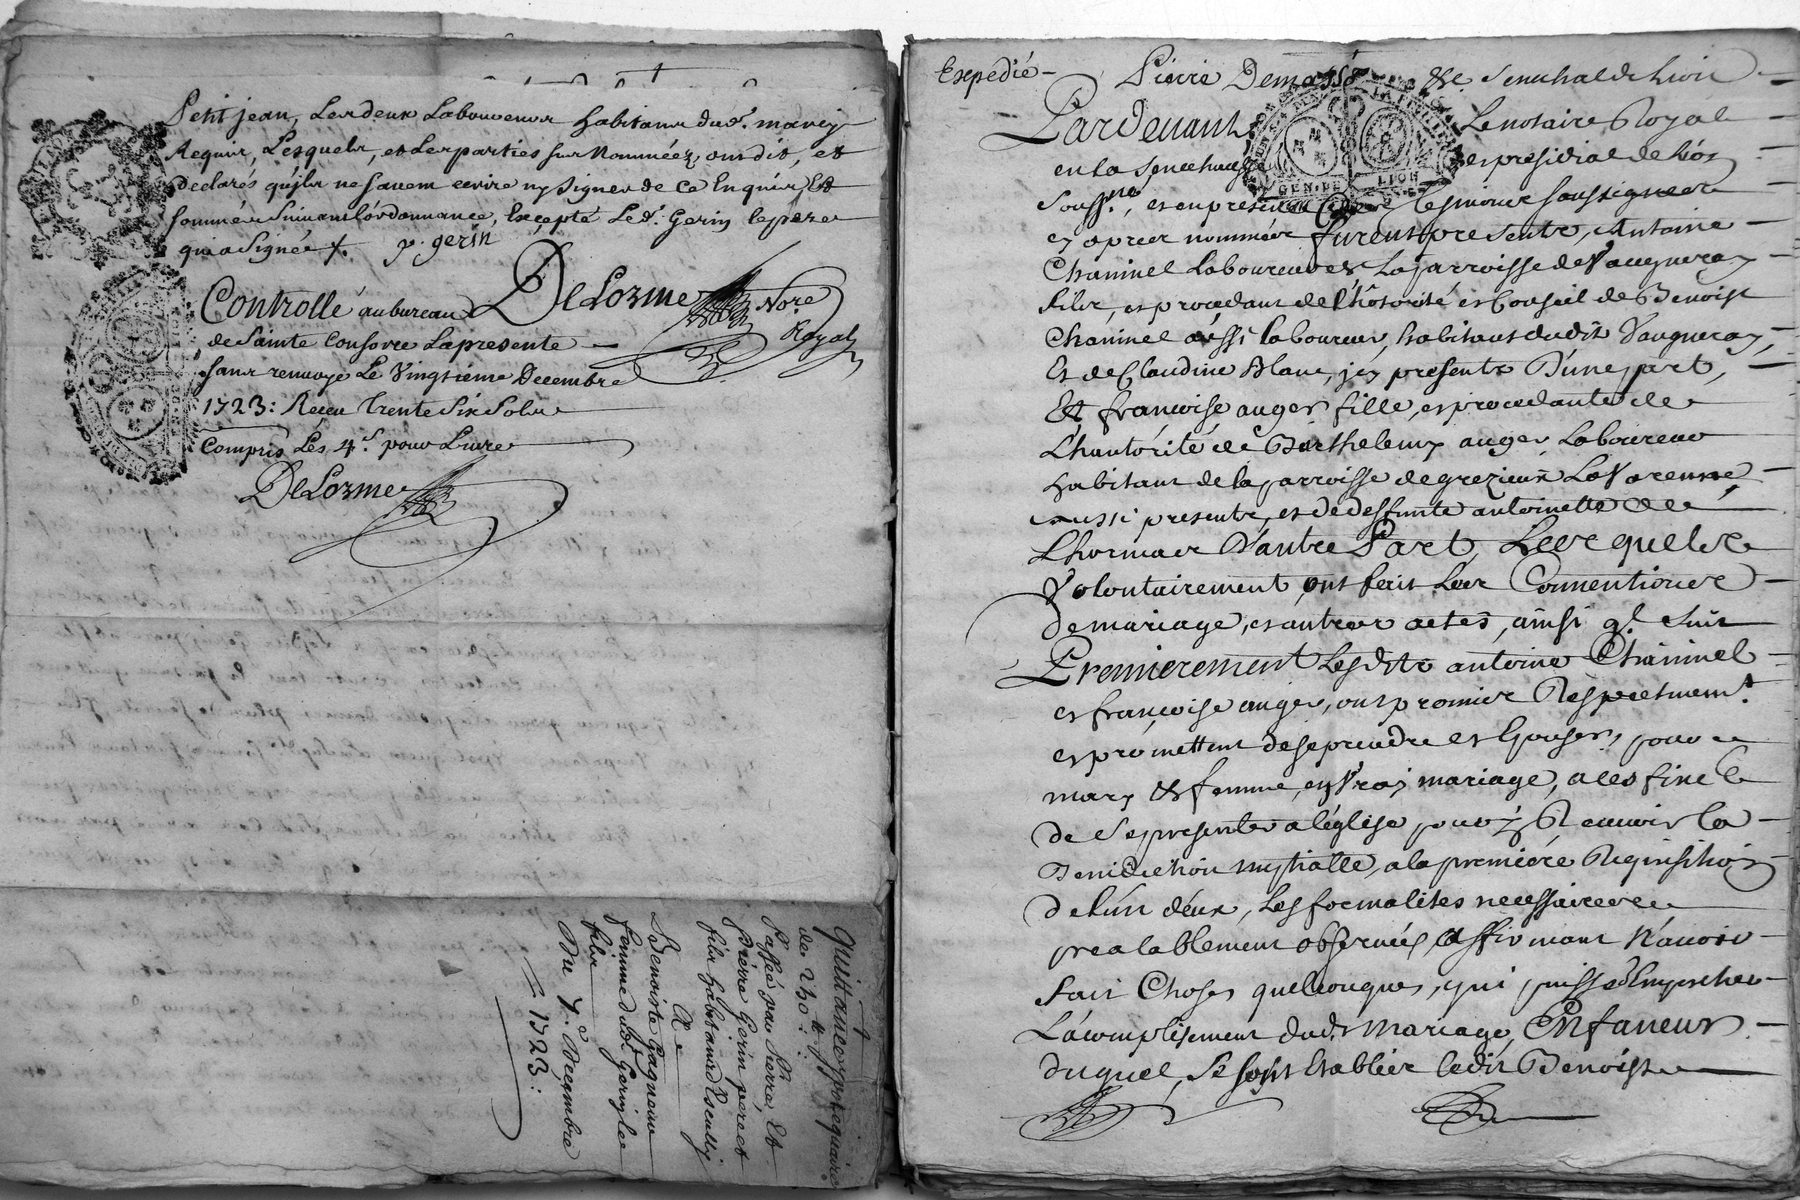 Petit jean, Les deux Laboureurs habitans dud<sup>t</sup>. marcy
Requis, Lesquels, et Les parties sus Nommééz, ont dit, et
declarés qu'jls ne savent ecrire ny signer de ce Enquis, Et
sommés suivant l'ordonnance, Excepté Le d<sup>t</sup>. Gerin le pere
qui a Signée ƒ. p. gerin
DeLorme No<sup>re</sup>
Royal
Controllé au bureau
de Sainte Consorce La presente
sans renvoye Le Vingtieme Decembre
1723: Receu Trente Six Sols
Compris Les 4<sup>s</sup>. pour Livre
DeLorme
quittance ypotequaire
de 240:<sup>tt</sup>
Passéé par Pierre, Et
Pierre Gerin pere et
fils habitans d'Escully
A
Benoiste Gagneur
femme dud<sup>t</sup> Gerin, le
fils
Du 7.<sup>e</sup> Decembre
1723:
Expedié
Pierre Demasso &c Senechal de Lion
Pardevant Le notaire Royal
en la Senechaussé et presidial de Lion
Souss<sup>né</sup>, et en presence des Tesmoins soussignes
et apres nommés furent presents, Antoine
Chaninel Laboureur de La parroisse de Vaugneray
fils, et procedant de l'hotorité et Conseil de Benoist
Chaninel aussi laboureur, habitant dudit Vaugneray,
Et de Claudine Blanc, jcy presents D'une part,
Et françoise auger fille, et procedante de
L'hautorité de Barthelemy auger, Laboureur
habitant de la parroisse de grezieux La Varenne,
aussi present, et de deffunte antoinette de
Lhormaer D'autre Part, Lesquels
Volontairement, ont fait Les Conventions
de mariage, et autres actes, ainsi q<sup>l</sup>. suit
Premierement Lesdits antoine Chaninel
et françoise auger, ont promis Respectivem<sup>t</sup>.
et promettent de se prendre et Epouser, pour
mary & femme, en Vray mariage, a ces fins
de se presenter a l'église pour y Recevoir la
Benediction nuptialle, a la premiére Requisition
de L'un d'eux, Les formalités necessaires
prealablement observées, affirmant N'avoir
fait Choses quelconques, qui puisse Empecher
L'acomplisement dud<sup>t</sup> mariage, En faveur
duquel, Se sont Etablies ledit Benoist